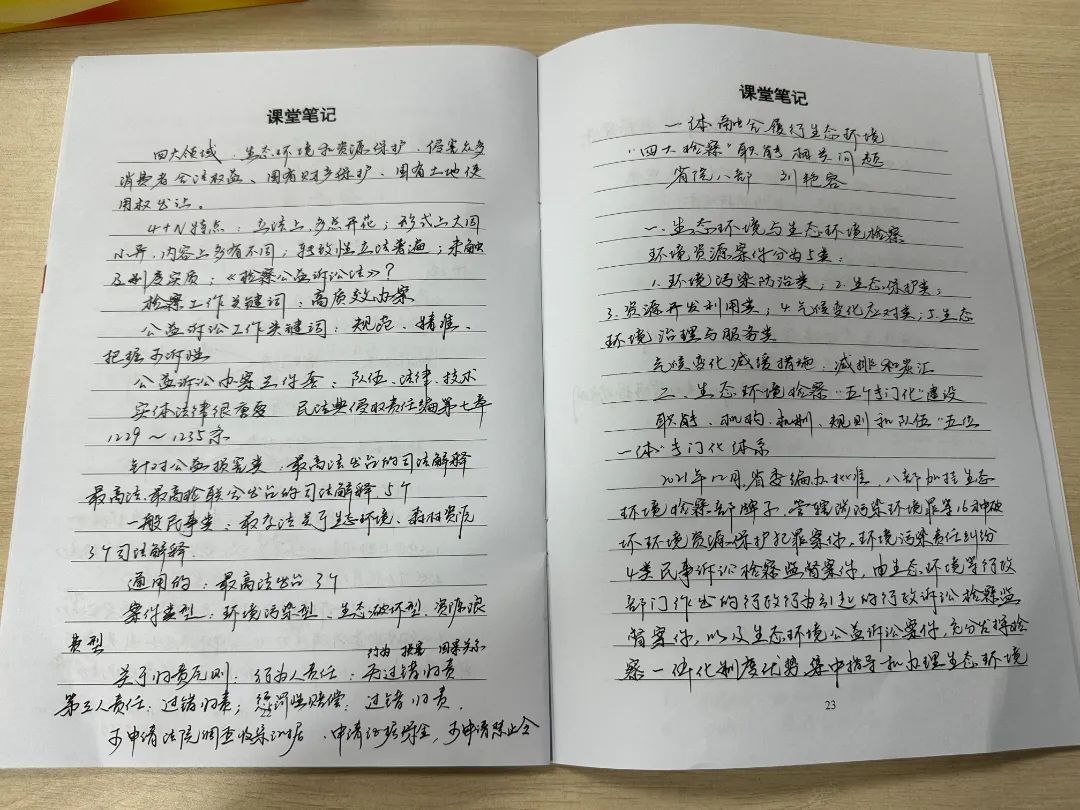 课堂笔记
四大领域：生态环境和资源保护、侵害众多
消费者合法权益、国有财产保护、国有土地使
用权出让。
4+N特点：立法上，多点开花；形式上大同
小异，内容上多有不同；软性立法普遍；未触
及制度实质；《检察公益诉讼法》？
检察工作关键词：高质效办案
公益诉讼工作关键词：规范、精准、
把握可诉性
公益诉讼办案三件套：队伍、法律、技术
实体法律很重要 民法典侵权责任编第七章
1229～1235条
针对公益损害类：最高法出台的司法解释
最高法、最高检联合出台的司法解释 5个
一般民事类：最高法关于生态环境、森林资源
3个司法解释
通用的：最高法出台 3个
案件类型：环境污染型、生态破坏型、资源浪
费型
行为 损害 因果关系
关于归责原则：行为人责任：无过错归责
第三人责任：过错归责；惩罚性赔偿：过错归责
可申请法院调查收集证据、申请证据保全，可申请禁止令
课堂笔记
一体融合履行生态环境
“四大检察”职能相关问题
省院八部 刘艳容
一、生态环境与生态环境检察
环境资源案件分为5类：
1.环境污染防治类；2.生态保护类；
3.资源开发利用类；4.气候变化应对类；5.生态
环境治理与服务类
气候变化减缓措施：减排和碳汇
二、生态环境检察“五个专门化”建设
职能、机构、机制、规则和队伍“五位
一体”专门化体系
2021年12月，省委编办批准，八部加挂生态
环境检察部牌子，管辖涉污染环境罪等16种破
坏环境资源保护犯罪案件，环境污染责任纠纷
4类民事诉讼检察监督案件，由生态环境等行政
部门作出的行政行为引起的行政诉讼检察监
督案件，以及生态环境公益诉讼案件，充分发挥检
察一体化制度优势，集中指导和办理生态环境
23